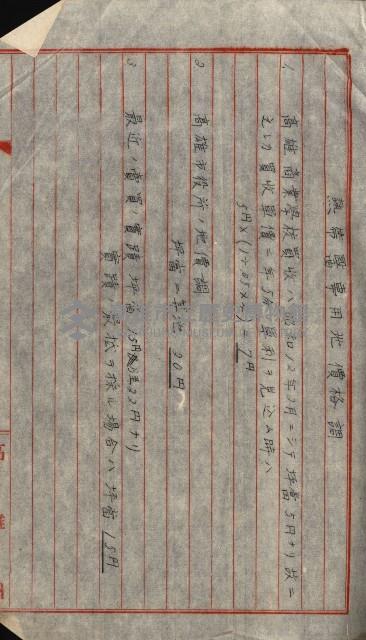 熱帯園専用地價格調
1. 高雄商業學校買收ハ昭和12年3月ニシテ坪當5円ナリ故ニ
之レヲ買收單價ニ年5分單利ヲ見込ム時ハ
5円×(1+0.05× )=7円
2 高雄市役所ノ地價調
坪當 20円
3 最近ノ賣買ノ實績 坪當 15円 22円ナリ
實績ノ最低ヲ採ル場合ハ坪當 15円
高雄州